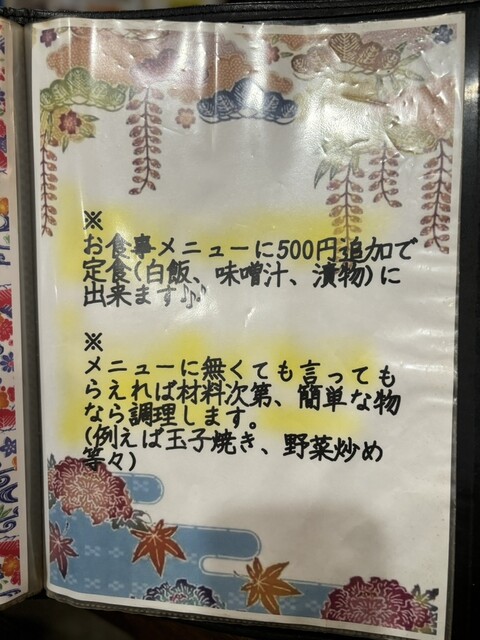 ※
お食事メニューに500円追加で
定食(白飯、味噌汁、漬物)に
出来ます♪♪
※
メニューに無くても言っても
らえれば材料次第、簡単な物
なら調理します。
(例えば玉子焼き、野菜炒め
等々)